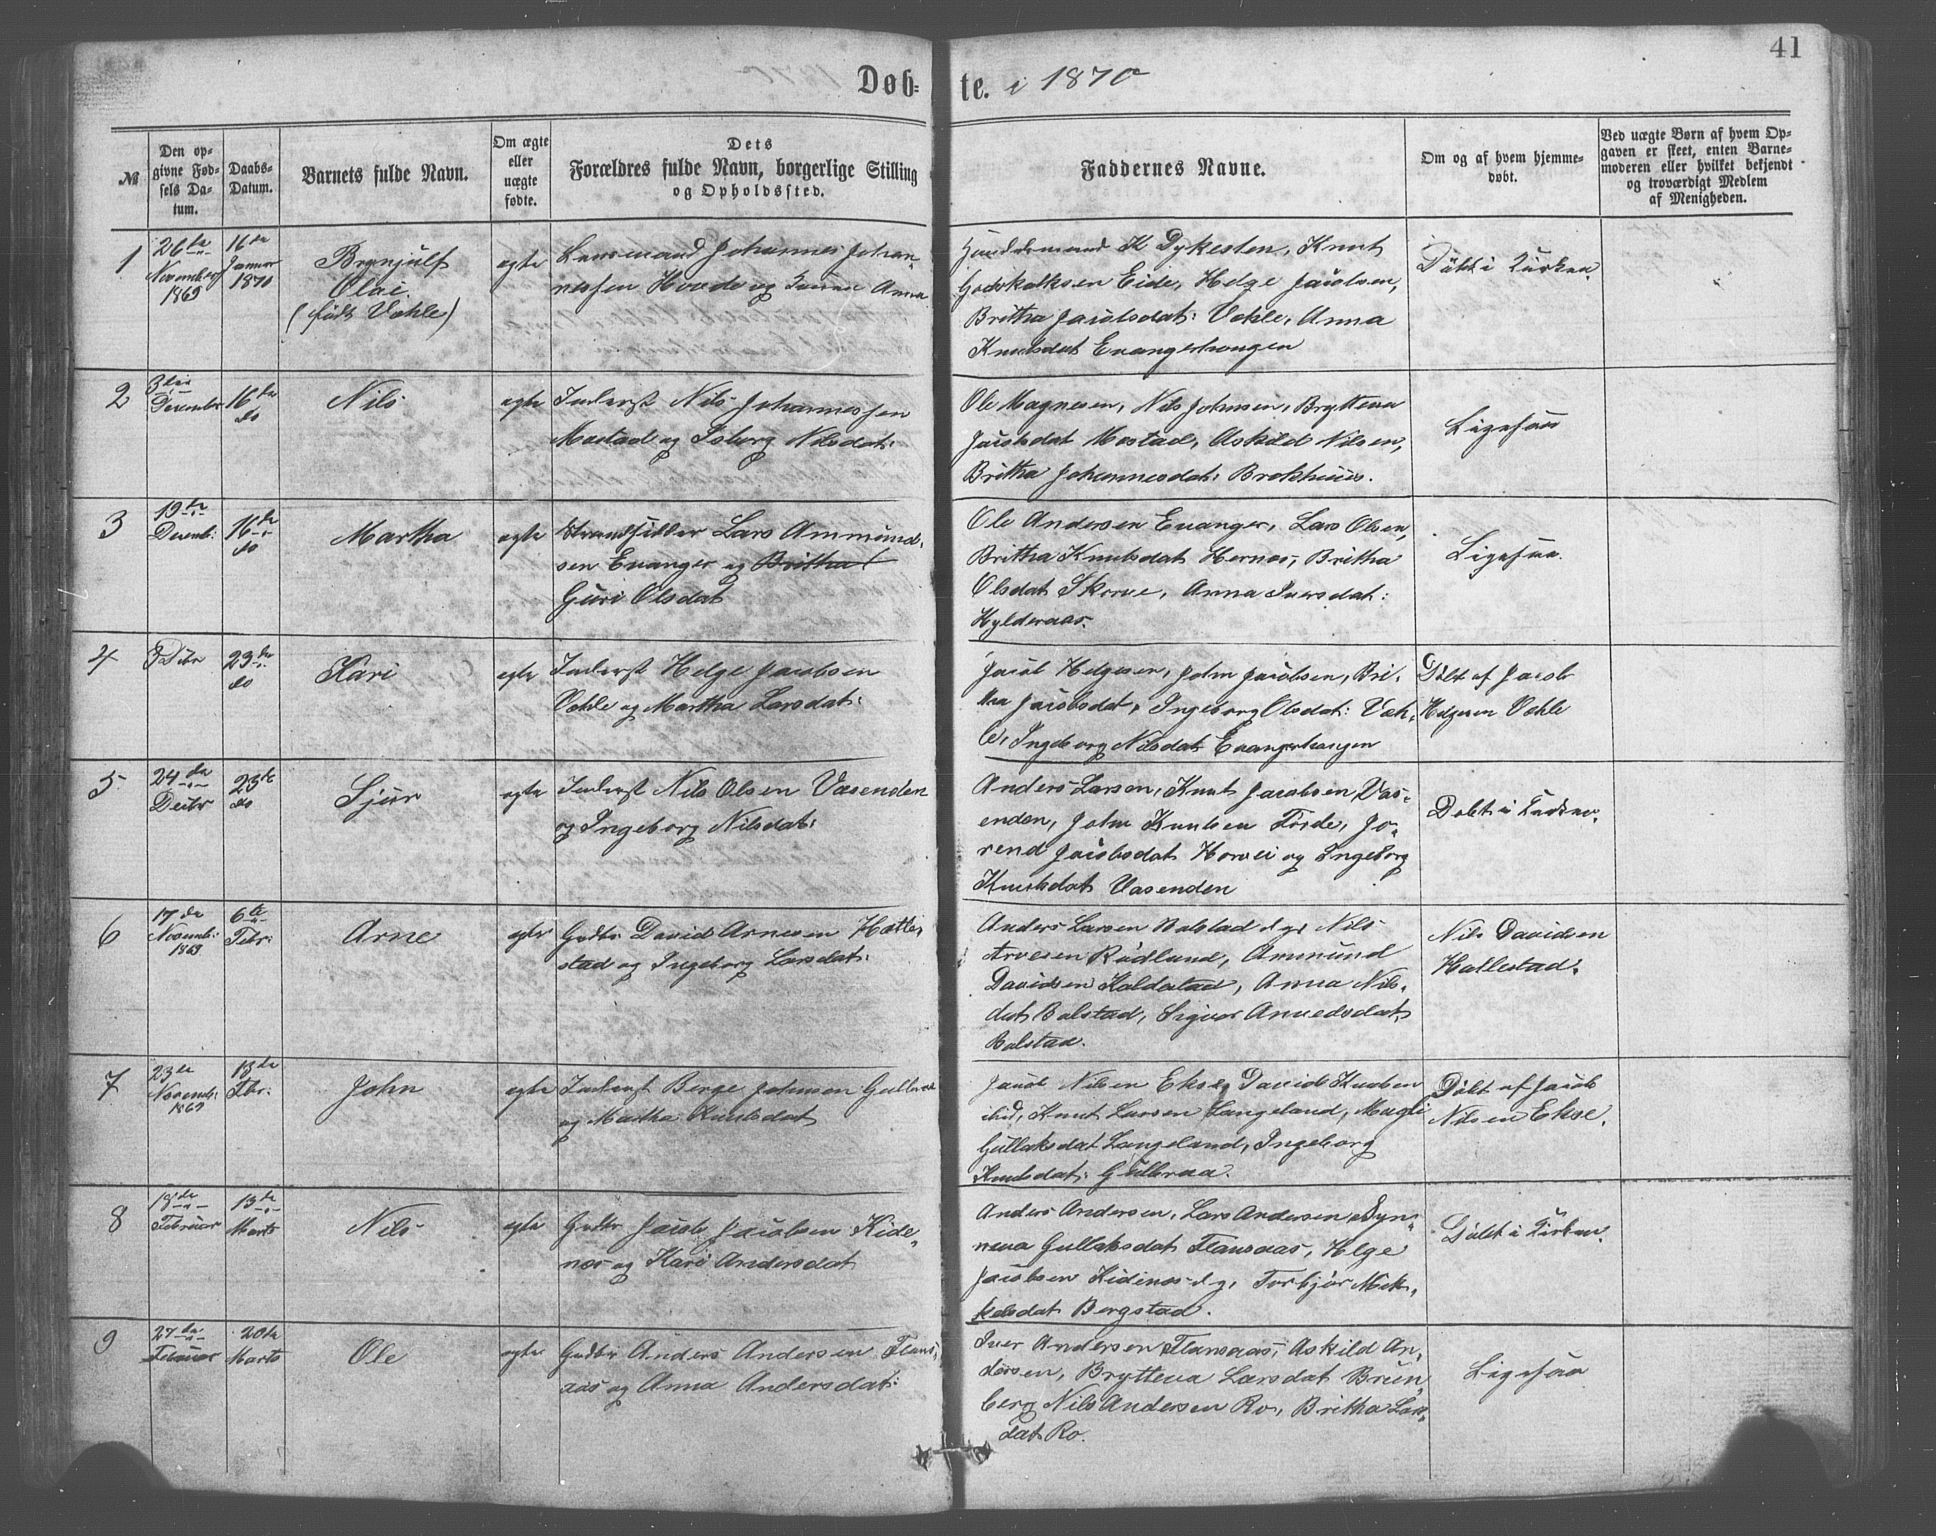 41
Døb-te. i 1870
№
Den op-
givne Fød-
sels Da-
tum.
Daabs-
Datum.
Barnets fulde Navn.
Om ægte
eller
uægte
fødte.
Dets
Forældres fulde Navn, borgerlige Stilling
og Opholdssted.
Faddernes Navne.
Om og af hvem hjemme-
døbt.
Ved uægte Børn af hvem Op-
gaven er skeet, enten Barne-
moderen eller hvilket bekjendt
og troværdigt Medlem
af Menigheden.
1
26de
November
1869
16de
Januar
1870
Brynjulf
Olai
(født Væhle)
ægte
Johannes Johan-
nessen og Anna
K Dykesten, Knut
Godskalksen Eide, Helge Jacobsen,
Britha Jacobsdat: Væhle, Anna
Knutsdat Evangerhougen
Døbt i Kirken.
2
3die
December
16de
do
Nils
ægte
Inderst Nils Johannessen
Mostad og Isberg Nilsdat:
Ole Magnesen, Nils Johnsen, Brytteva
Jacobsdat Mostad, Askild Nilsen,
Britha Johannesdat: Brekhuus.
Ligesaa
3
19de
Decemb:
16de
do
Martha
ægte
Strandsidder Lars Ammund-
sen Evanger og Britha
Guri Olsdat
Ole Andersen Evanger, Lars Olsen,
Britha Knutsdat Hernæs, Britha
Olsdat Skorve, Anna Iversdat:
Hylderaas.
Ligesaa.
4
8 Decbr
23de
do
Kari
ægte
Inderst Helge Jacobsen
Væhle og Martha Larsdat:
Jacob Helgesen, John Jacobsen, Bri-
tha Jacobsdat, Ingeborg Olsdat: Væh-
le, Ingeborg Nilsdat Evangerhougen
Døbt af Jacob
Helgesen Væhle
5
24de
Decbr
23de
do
Sjur
ægte
Inderst Nils Olsen Vasenden
og Ingeborg Nilsdat:
Anders Larsen, Knut Jacobsen Vas-
enden, John Knutsen Førde, Jo-
rend Jacobsdat Horvei og Ingeborg
Knutsdat Vasenden
Døbt i Kirken.
6
17de
Novemb:
1869
6te
Febr:
Arne
ægte
Gdbr David Arnesen Hatle-
stad og Ingeborg Larsdat:
Anders Larsen Bolstad d.y. Nils
Arvesen Rødland, Ammund
Davidsen Kaldestad, Anna Nils-
dat Bolstad, Sigvor Anvedsdat
Bolstad.
Nils Davidsen
Hallestad.
7
23de
Novemb:
1869
13de
Febr.
John
ægte
Inderst Berge Johnsen Gulbraa
og Martha Knutsdat
Jacob Nilsen Ekse, David Knutsen
ibid, Knut Larsen Langeland, Magli
Gullaksdat Langeland, Ingeborg
Knutsdat: Gulbraa.
Døbt af Jacob
Nilsen Ekse.
8
18de
Februar
13de
Marts
Nils
ægte
Gdbr Jacob Jacobsen Kide-
næs og Kari Andersdat
Anders Andersen, Lars Andersen Syn-
neva Gullaksdat Flansaas, Helge
Jacobsen Kidenæs d.y. Torbjør Mik-
kelsdat Bergstad.
Døbt i Kirken.
9
27de
Februar
20de
Marts
Ole
ægte
Gdbr Anders Andersen Flans-
aas og Anna Andersdat:
Iver Andersen Flansaas, Askild An-
dersen, Brytteva Larsdat Brun-
berg Nils Andersen Ro, Britha Lars-
dat Ro.
Ligesaa